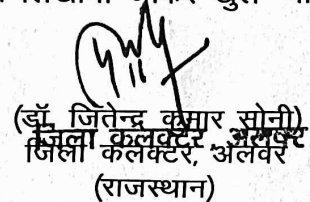 (डॉ. जितेन्द्र कुमार सोनी)
जिला कलक्टर, अलवर
जिला कलक्टर, अलवर
(राजस्थान)